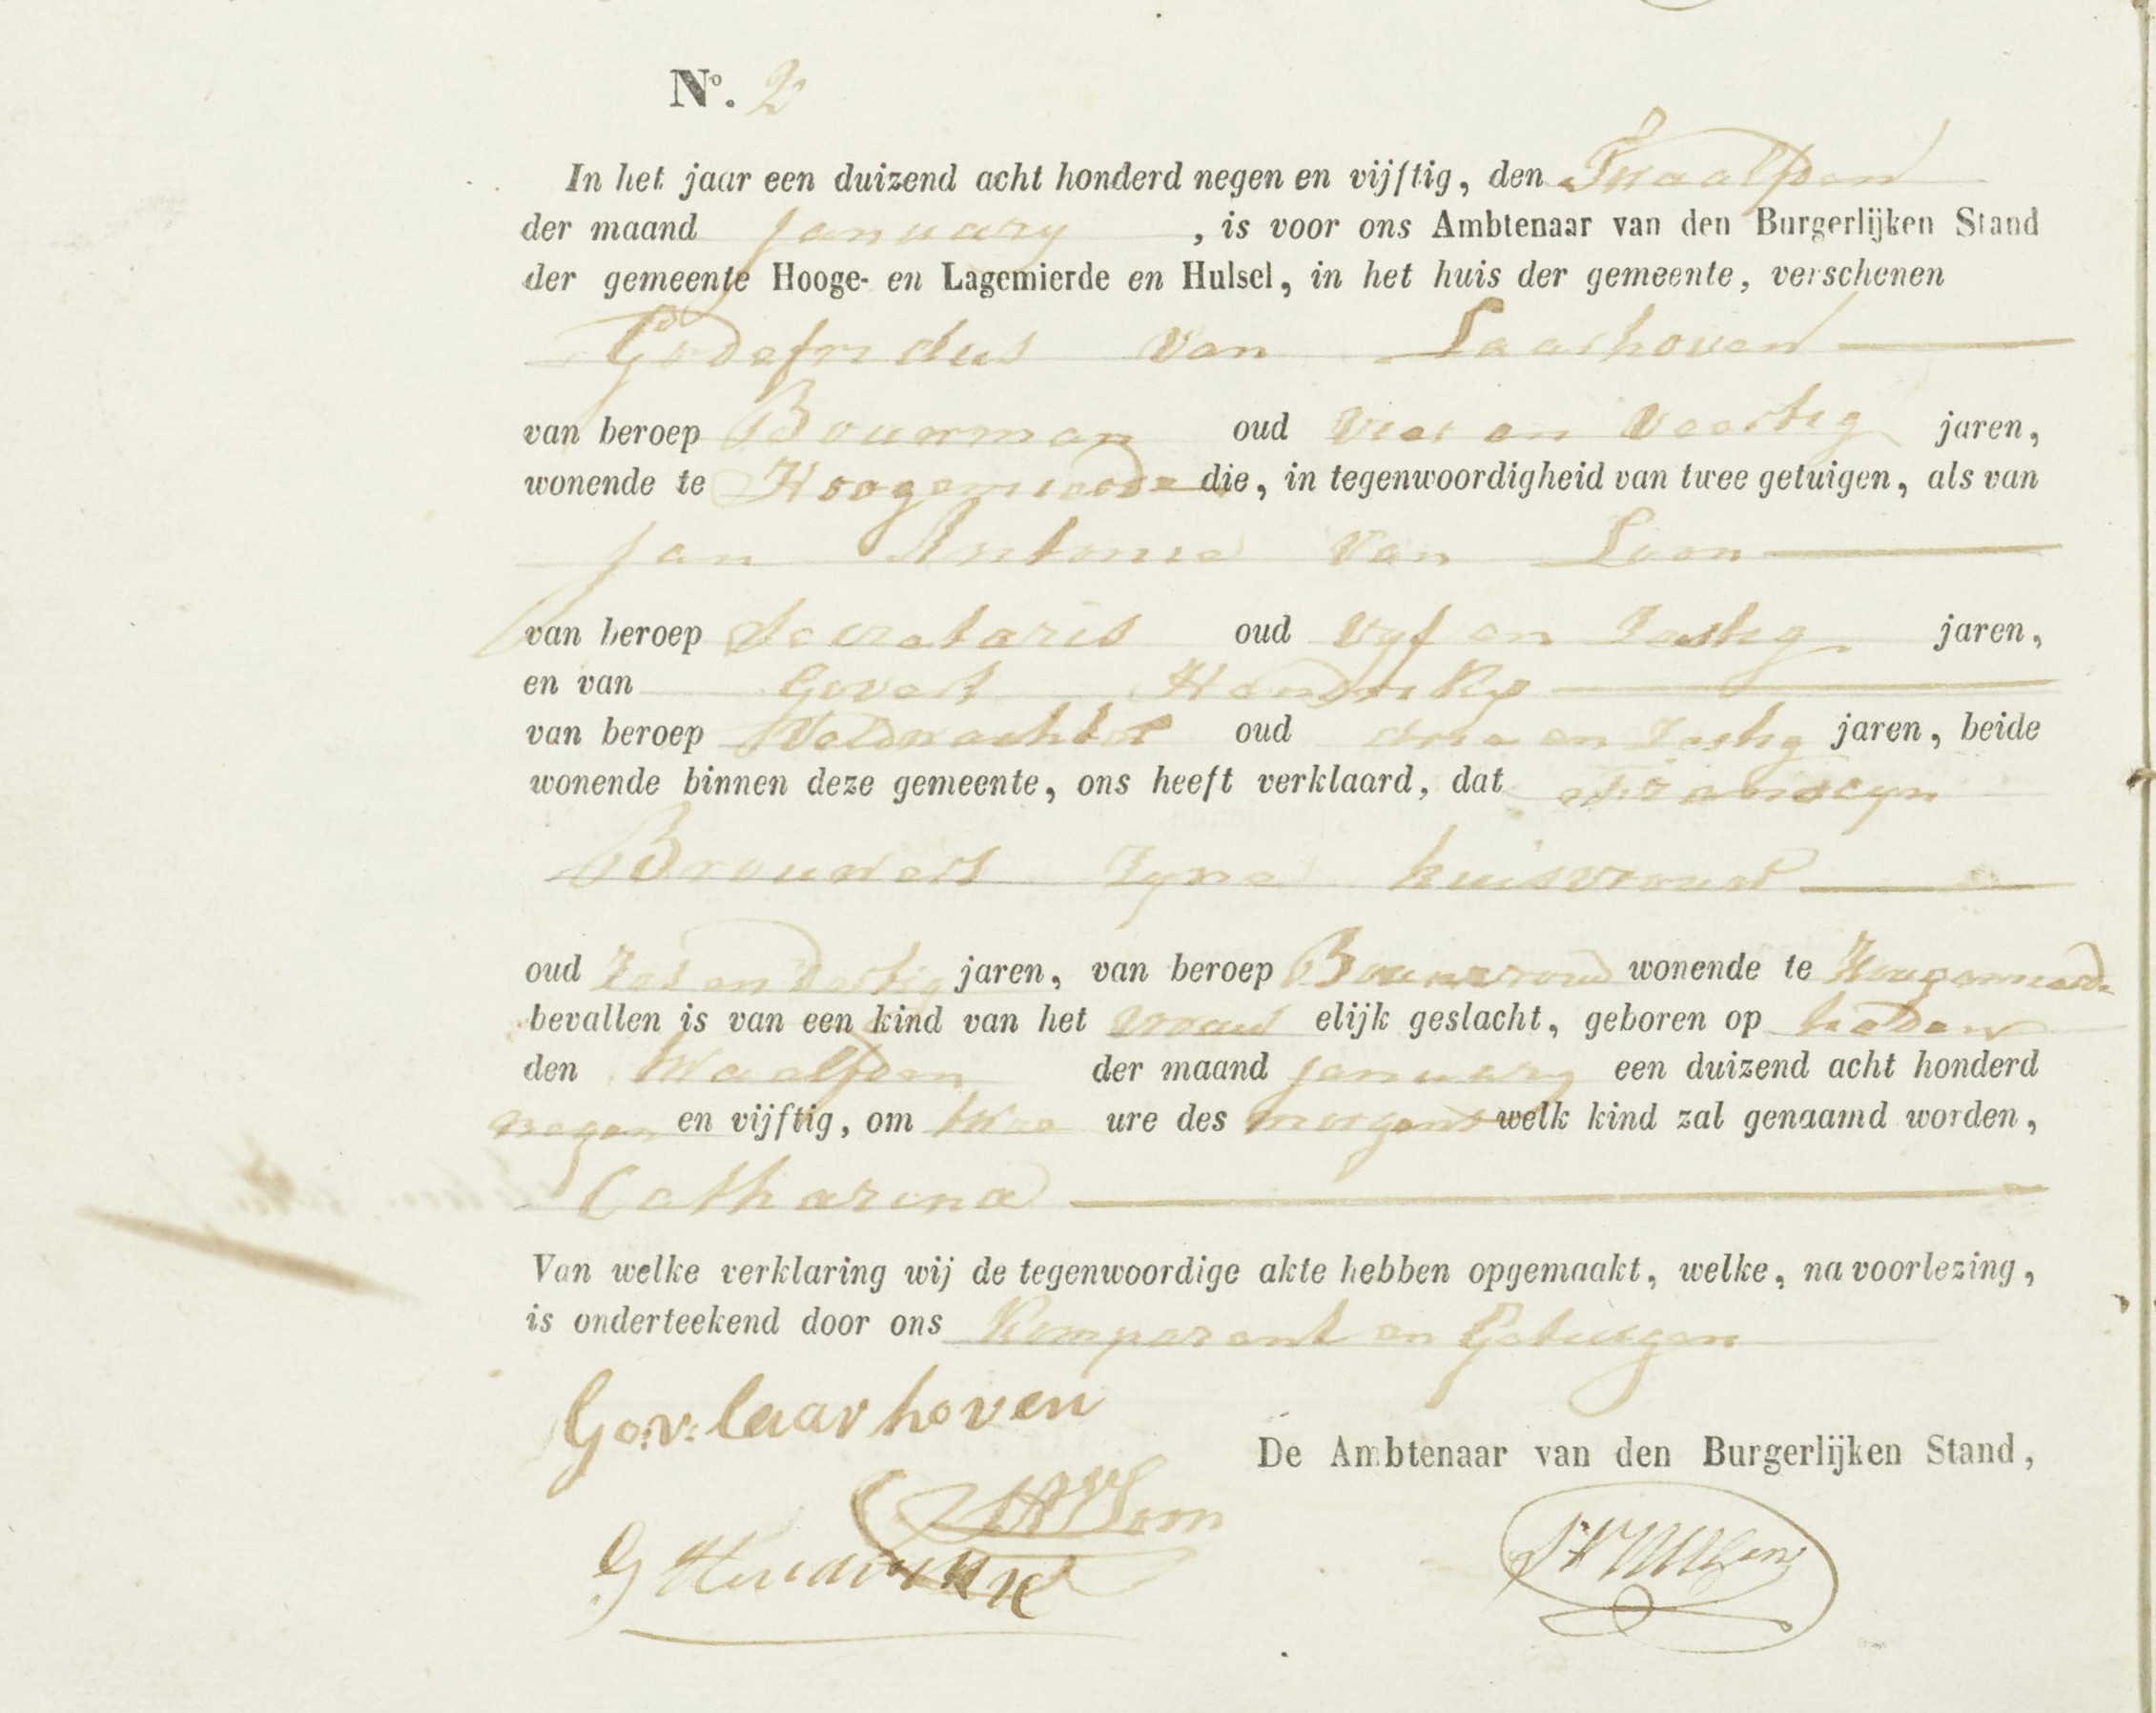 No. 2
In het jaar een duizend acht honderd negen en vijftig, den Twaalfden
der maand January , is voor ons Ambtenaar van den Burgerlijken Stand
der gemeente Hooge- en Lagemierde en Hulsel, in het huis der gemeente, verschenen
Godefridus van Laarhoven
van beroep Bouwman oud vier en veertig jaren,
wonende te Hoogemierde die, in tegenwoordigheid van twee getuigen, als van
Jan Antonie van Loon
van beroep Secretaris oud vyf en Zestig jaren,
en van Govert Hendrikx
van beroep Veldwachter oud drie en Zestig jaren, beide
wonende binnen deze gemeente, ons heeft verklaard, dat Franscyn
Brouwers Zyne huisvrouw
oud Zes en Dertig jaren, van beroep Bouwvrouw wonende te Hoogemierde
bevallen is van een kind van het vrouw elijk geslacht, geboren op heden
den twaalfden der maand January een duizend acht honderd
negen en vijftig, om twee ure des morgens welk kind zal genaamd worden,
Catharina
Van welke verklaring wij de tegenwoordige akte hebben opgemaakt, welke, na voorlezing,
is onderteekend door ons Komparant en Getuigen
Go.v: laarhoven
De Ambtenaar van den Burgerlijken Stand,
G Hendrikx